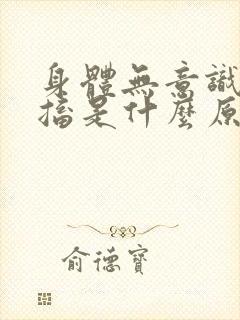 身體無意識
搐是什麼原
俞德寶